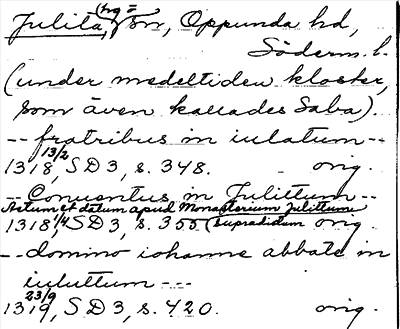 Julita, (hg = ) sn, Oppunda hd,
Söderm. l.
(under medeltiden kloster,
som även kallades Saba).
-- fratribus in iulatum --
1318 13/2, SD 3, s. 348. orig.
-- Conuentus in Julittum --
Actum et datum apud Monasterium Julittum
1318 1/4 SD 3, s. 355 (supradictum orig.
-- domino iohanne abbate in
iuluttum ---
1319 23/9, SD 3, s. 420. orig.